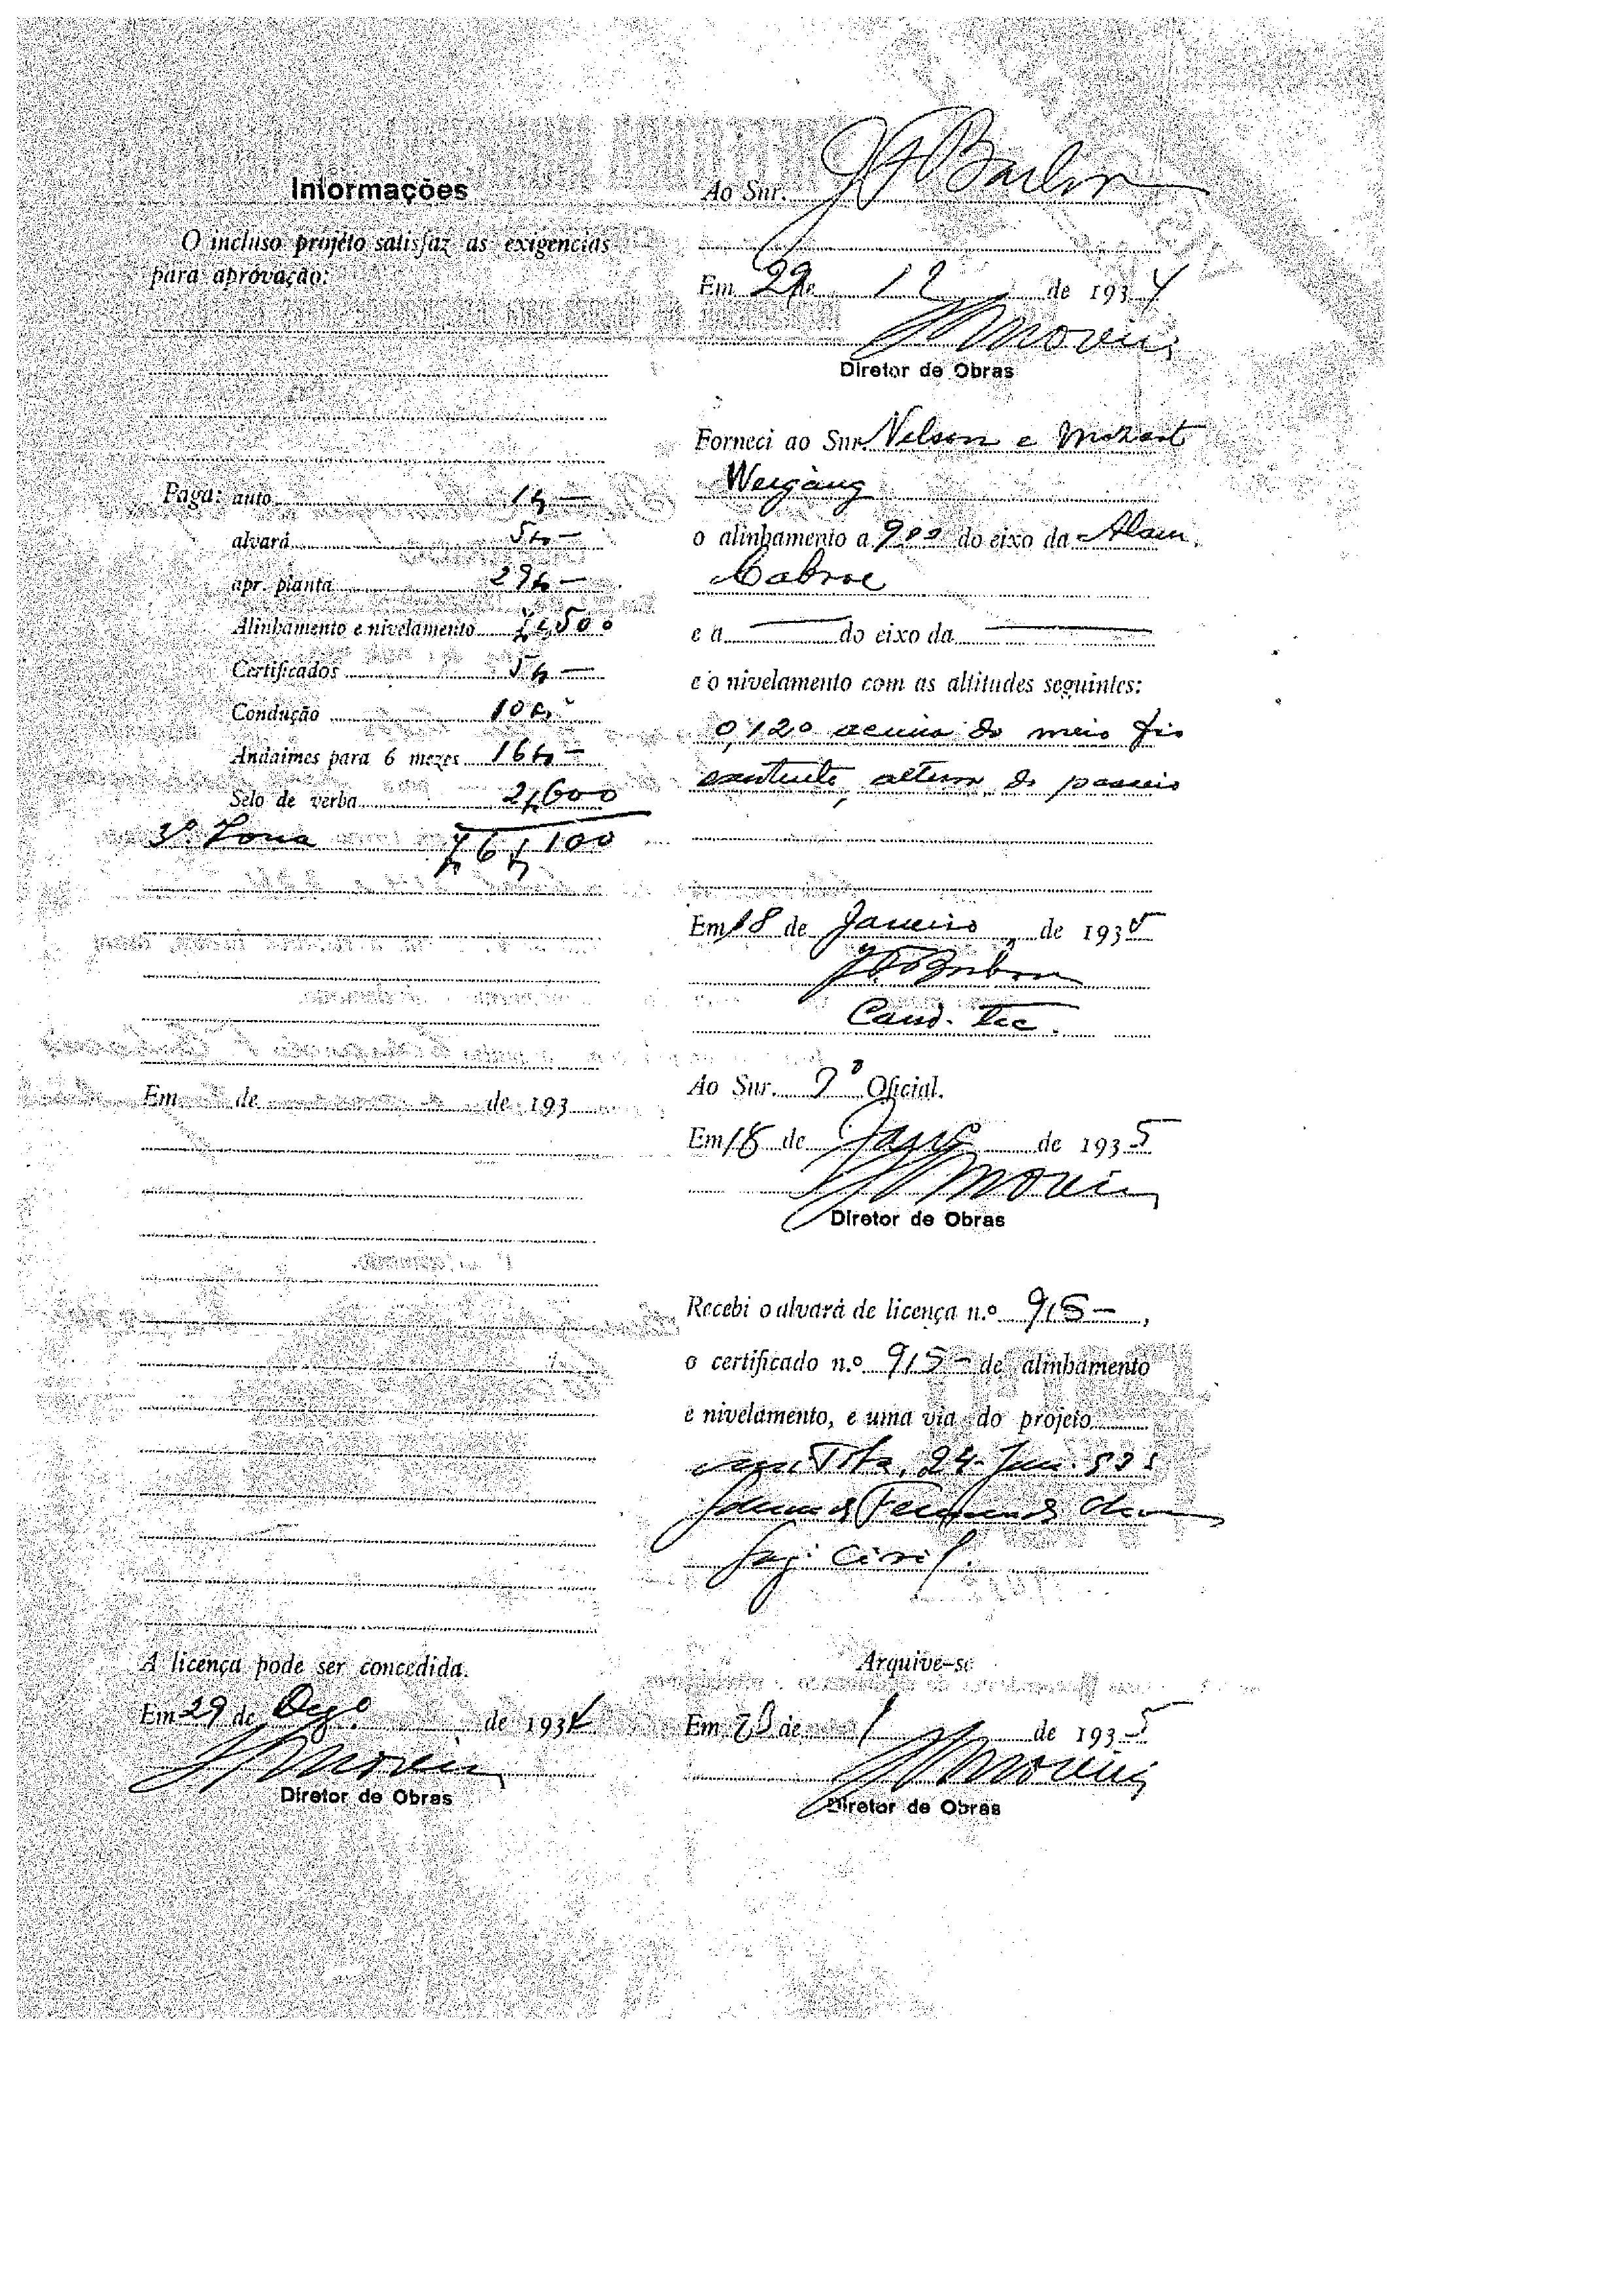 Informações
O incluso projéto satisfaz as exigencias
para aprovação:
Paga: auto 1$ —
alvará 5$ —
apr. planta 29$ —
Alinhamento e nivelamento 7$500
Certificados 5$ —
Condução 10$ —
Andaimes para 6 mezes 16$ —
Selo de verba 2$600
3ª Zona 76$100
Em de de 193
A licença pode ser concedida.
Em 29 de Dezº de 1934
Diretor de Obras
Ao Snr.
Em 29 de 12 de 1934
Diretor de Obras
Forneci ao Snr. Nelson e Mozart
Weigang
o alinhamento a 900 do eixo da Alam.
Cabral
e a — do eixo da —
e o nivelamento com as altitudes seguintes:
0,120 acima do meio fio
existente, altura do passeio
Em 18 de Janeiro de 1935
Cand. Tec.
Ao Snr. 2º Oficial.
Em 18 de Janº de 1935
Diretor de Obras
Recebi o alvará de licença n.º 915 —,
o certificado n.º 915 — de alinhamento
e nivelamento, e uma via do projeto
24 Jan.
Eng. Civil.
Arquive-se
Em 28 de 1 de 1935
Diretor de Obras